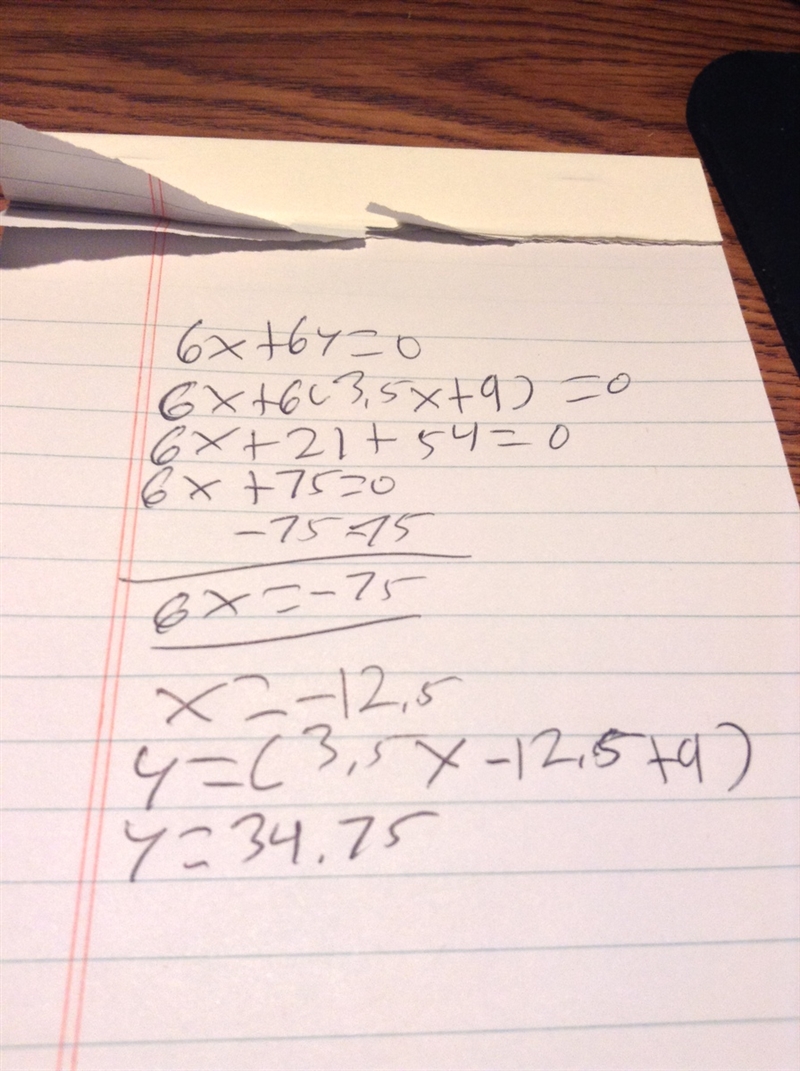 6x+6y=0
6x+6(3.5x+9)=0
6x+21+54=0
6x+75=0
-75-75
6x=-75
x=-12.5
y=(3.5x-12.5+9)
y=34.75